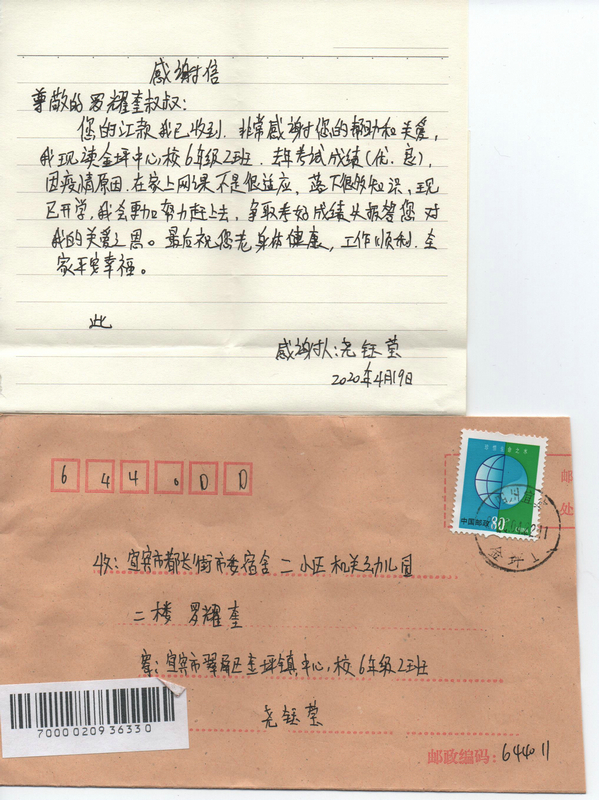 感谢信
尊敬的罗耀奎叔叔:
您的汇款我已收到.非常感谢您的帮助和关爱,
我现读金坪中心校6年级2班.去年考试成绩(优.良),
因疫情原因.在家上网课不是很适应,落下很多知识,现
已开学,我会更加努力赶上去,争取考好成绩来报答您对
我的关爱之恩。最后祝您老身体健康,工作顺利.全
家平安幸福。
此
感谢人:尧钰莹
2020年4月19日
644000
中国邮政 80
收:宜宾市都长街市委宿舍二小区机关幼儿园
二楼 罗耀奎
寄:宜宾市翠屏区金坪镇中心校6年级2班
尧钰莹
7000020936330
邮政编码:644011